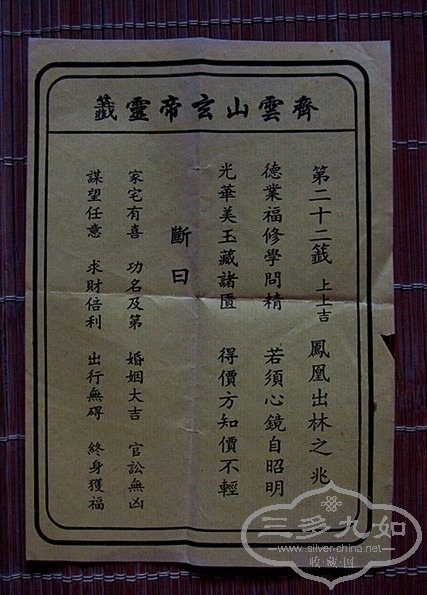 齊雲山玄帝靈籤
第二十二籤 上上吉 鳳凰出林之兆
德業福修學問精 若須心鏡自昭明
光華美玉藏諸匱 得價方知價不輕
斷曰
家宅有喜 功名及第 婚姻大吉 官訟無凶
謀望任意 求財倍利 出行無碍 終身獲福
三多九如
www.silver-china.net
收藏网